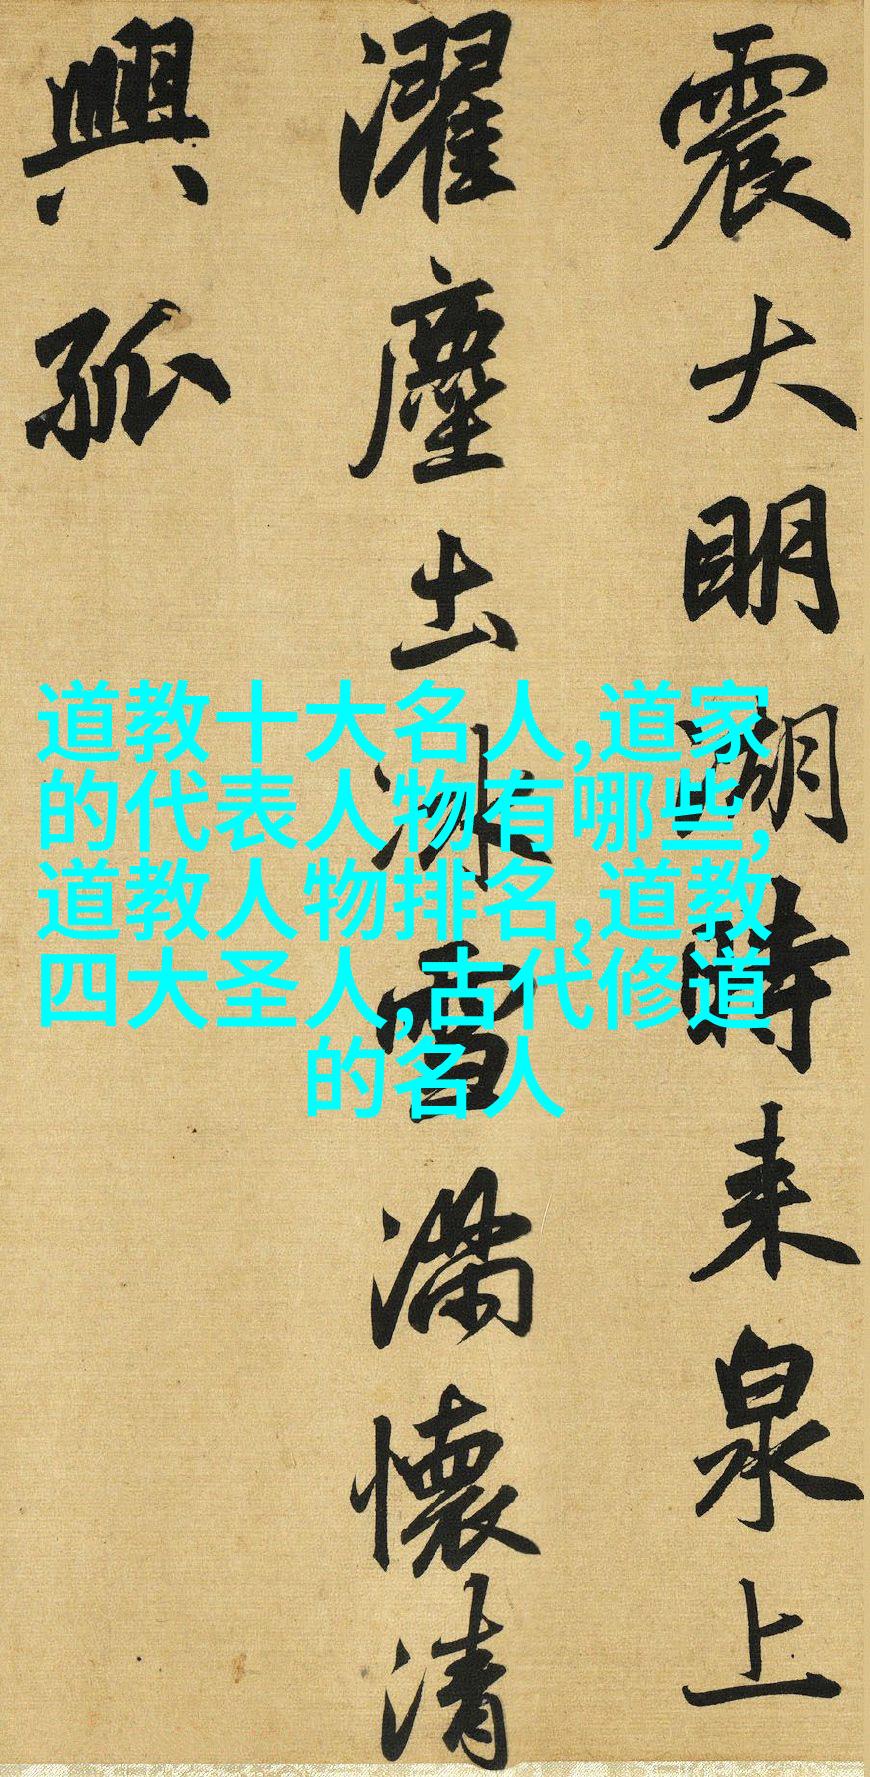 震大明湖時来泉上
濯塵出冰雪滿懷清
興孤
道教十大名人,道家
的代表人物有哪些,
道教人物排名,道教
四大圣人,古代修道
的名人